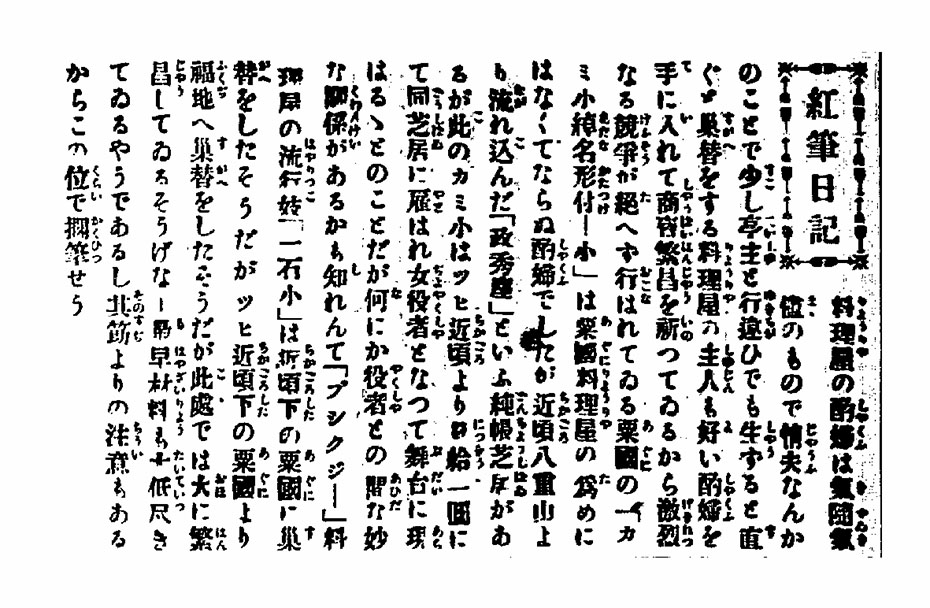 紅筆日記
料理屋の酌婦は氣隨氣
儘のもので情夫なんか
のことで少し亭主と行違ひでも生ずると直
ぐと巣替をする料理屋の主人も好い酌婦を
手に入れて商賣繁昌を祈つてゐるから激烈
なる競爭が絕へず行はれてゐる粟國の「カ
ミ小綽名形付ー小」は粟國料理屋の爲めに
はなくてならぬ酌婦でしたが近頃八重山よ
り流れ込んだ「政秀座」といふ純帳芝居があ
るが此のカミ小はツヒ近頃より日給一圓に
て同芝居に雇はれ女役者となつて舞台に現
はるゝとのことだが何にか役者との間な妙
な關係があるかも知れんて「ブシクジー」料
理屋の流行妓「一石小」は近頃下の粟國に巣
替をしたそうだがツヒ近頃下の粟國より
福地へ巣替をしたそうだが此處では大に繁
昌してゐるそうげなー最早材料も大低尽き
てゐるやうであるし其筋よりの注意もある
からこの位で擱筆せう